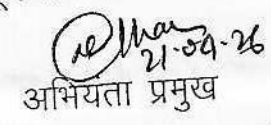 21-04-26
अभियंता प्रमुख